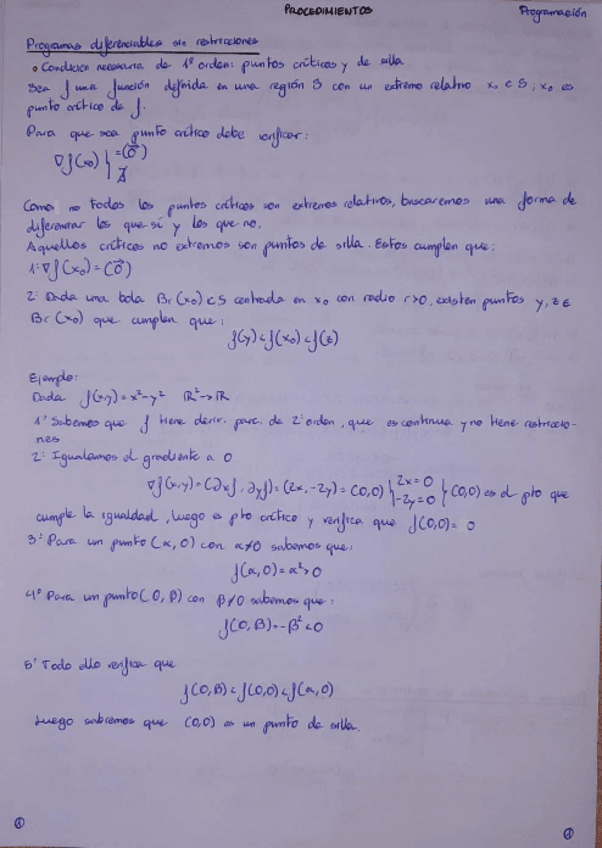 PROCEDIMIENTOS
Programación
Programas diferenciables sin restricciones
• Condición necesaria de 1º orden: puntos críticos y de silla
Sea f una función definida en una región S con un extremo relativo x₀ ∈ S; x₀ es
punto crítico de f.
Para que sea punto crítico debe verificar:
∇f(x₀) } =(0⃗)
∄
Como no todos los puntos críticos son extremos relativos, buscaremos una forma de
diferenciar los que sí y los que no.
Aquellos críticos no extremos son puntos de silla. Estos cumplen que:
1: ∇f(x₀) = (0⃗)
2: Dada una bola Br(x₀) ⊂ S centrada en x₀ con radio r>0, existen puntos y, z ∈
Br(x₀) que cumplen que:
f(y) < f(x₀) < f(z)
Ejemplo:
Dada f(x,y) = x²-y² ℝ²→ℝ
1º Sabemos que f tiene deriv. parc. de 2º orden, que es continua y no tiene restriccio-
nes
2º Igualamos el gradiente a 0
∇f(x,y) = (∂xf, ∂yf) = (2x, -2y) = (0,0) { 2x=0
-2y=0 } (0,0) es el pto que
cumple la igualdad, luego es pto crítico y verifica que f(0,0) = 0
3º Para un punto (α, 0) con α≠0 sabemos que:
f(α,0) = α²>0
4º Para un punto (0, β) con β≠0 sabemos que:
f(0,β) = -β²<0
5º Todo ello verifica que
f(0,β) < f(0,0) < f(α,0)
Luego sabremos que (0,0) es un punto de silla.
①
①